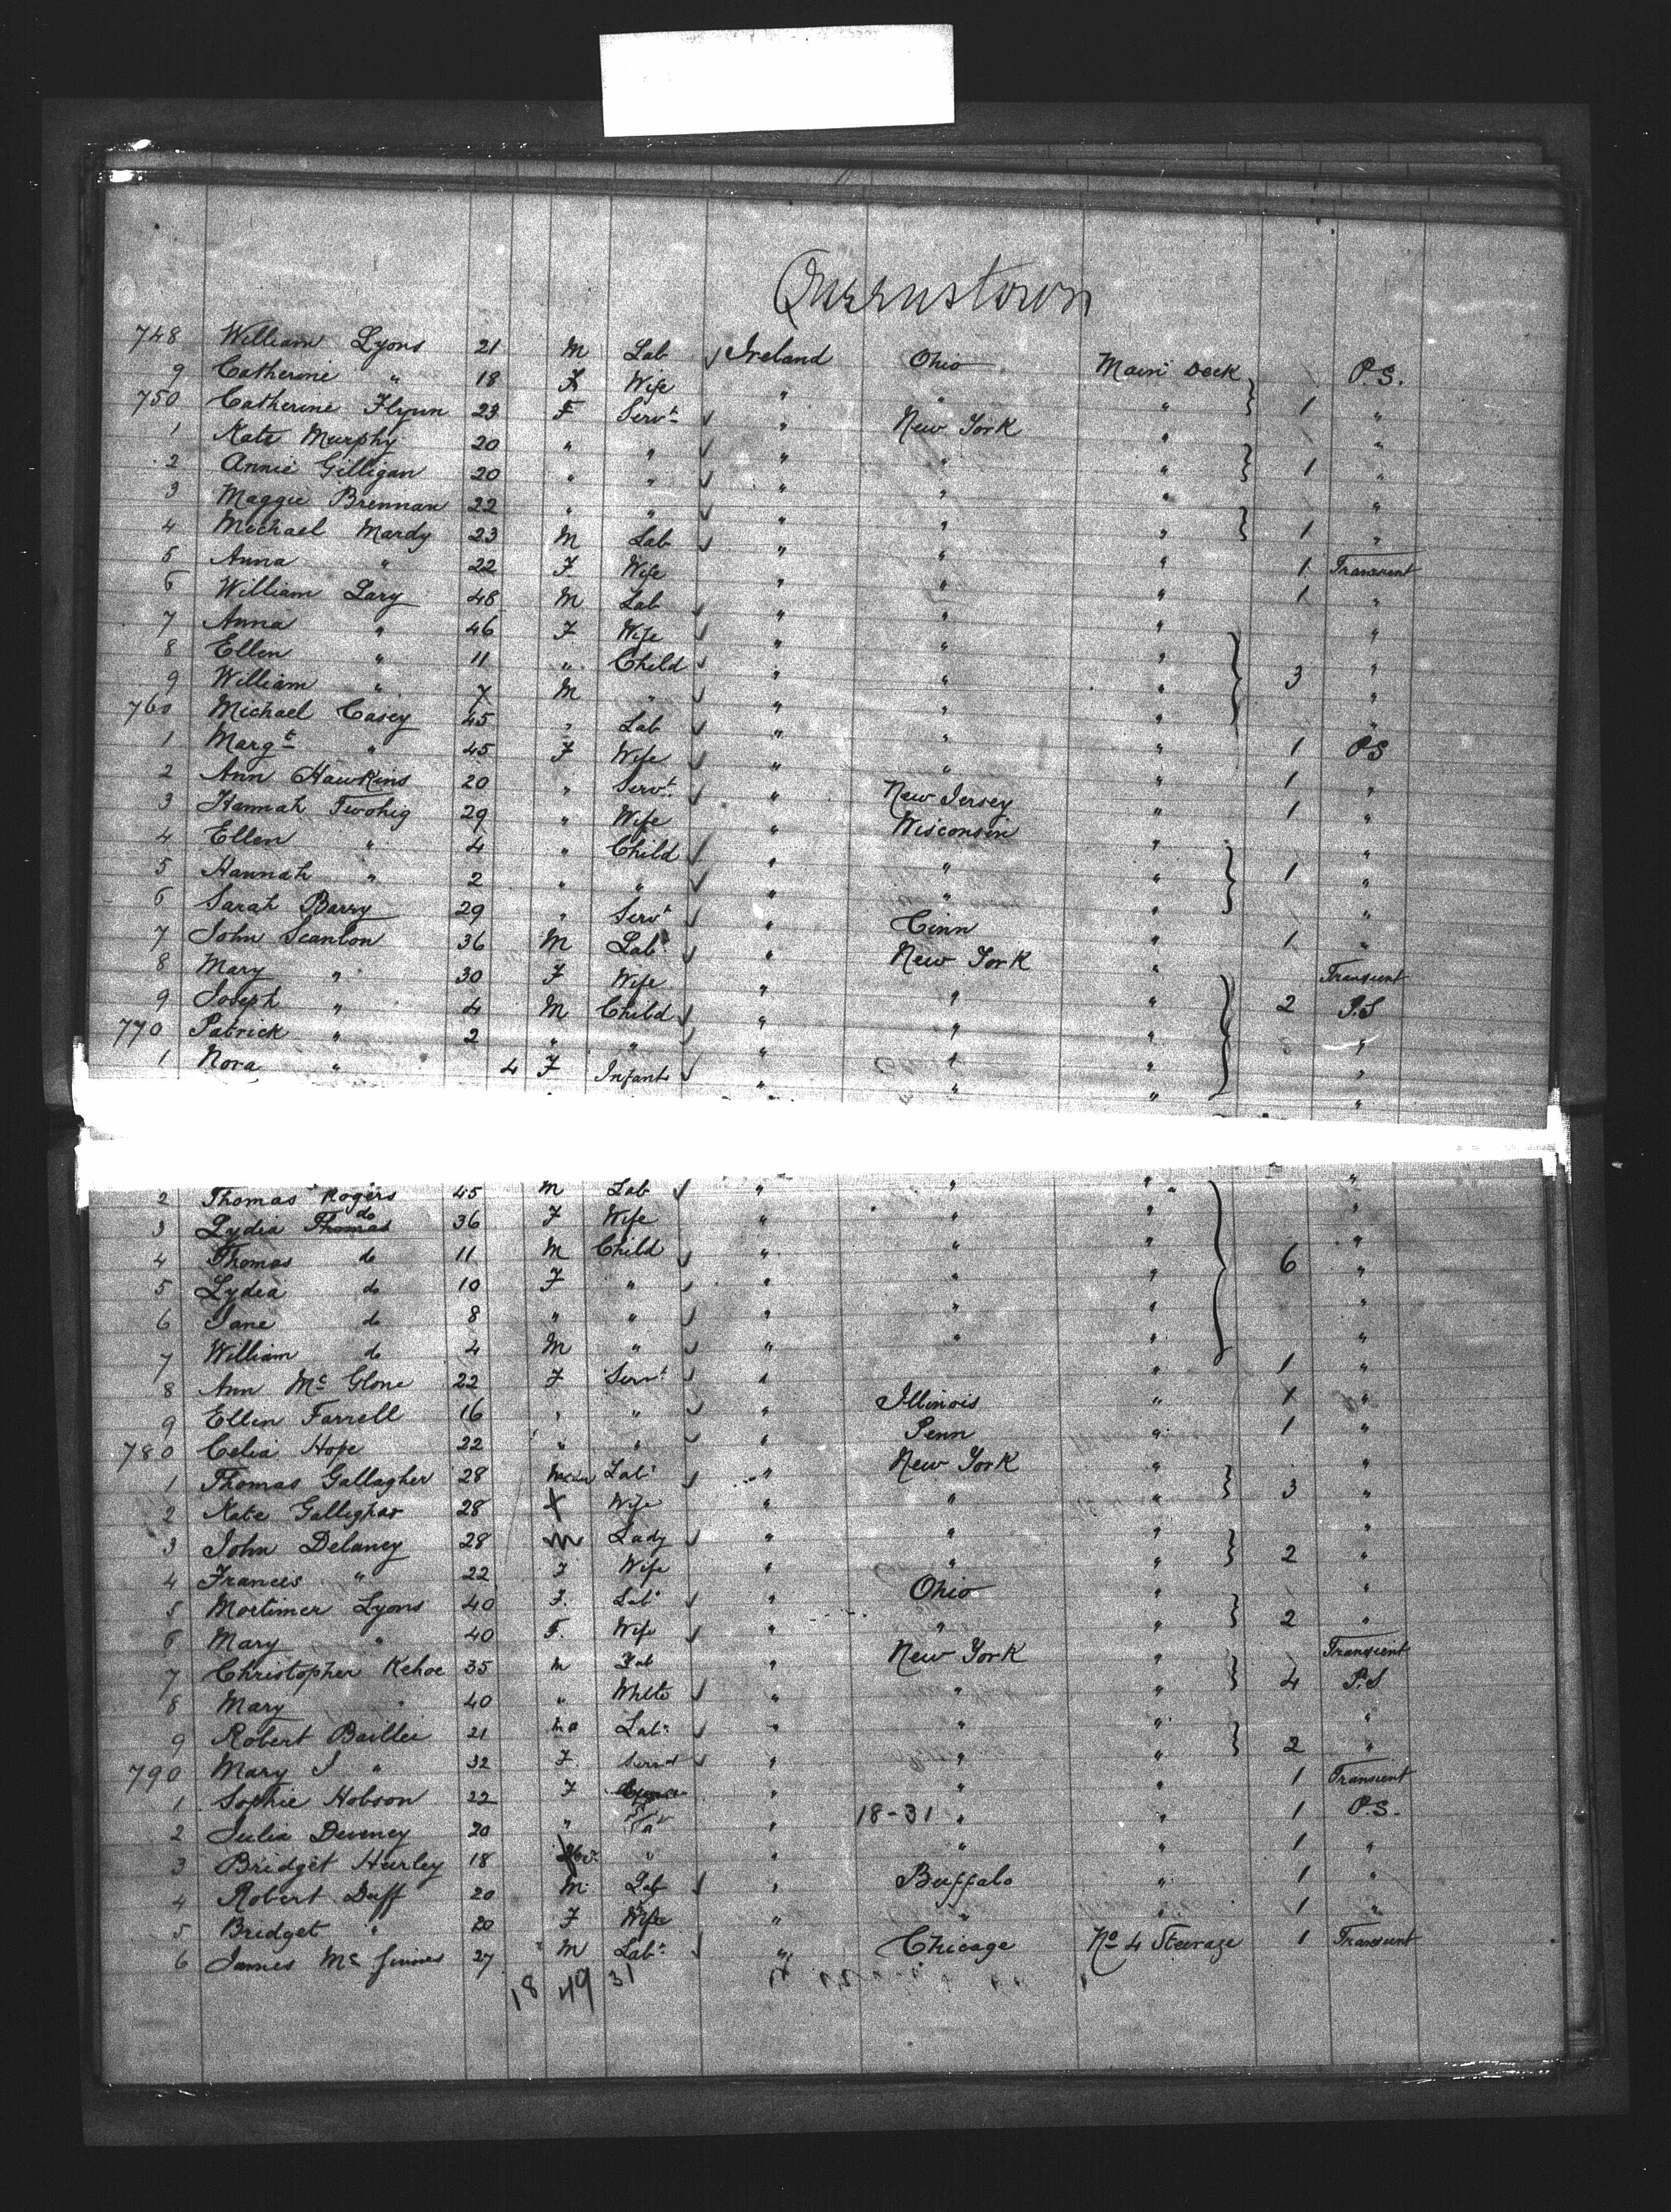 Queenstown
748 William Lyons 21 M Lab Ireland Ohio Main Deck P.S.
9 Catherine " 18 F Wife " " " 1 "
750 Catherine Flynn 23 F Servt " New York " "
1 Kate Murphy 20 " " " " " 1 "
2 Annie Gilligan 20 " " " " " "
3 Maggie Brennan 22 " " " " " 1 "
4 Michael Mardy 23 M Lab " " " 1 Transient
5 Anna " 22 F Wife " " " 1 "
6 William Lary 48 M Lab " " " "
7 Anna " 46 F Wife " " " "
8 Ellen " 11 " Child " " " 3 "
9 William " 7 M " " " " "
760 Michael Casey 45 " Lab " " " 1 P.S
1 Margt " 45 F Wife " " " 1 "
2 Ann Hawkins 20 " Servt " New Jersey " 1 "
3 Hannah Twohig 29 " Wife " Wisconsin " "
4 Ellen " 4 " Child " " " 1 "
5 Hannah " 2 " " " " " "
6 Sarah Barry 29 " Servt " Cinn " 1 "
7 John Scanlon 36 M Lab " New York " Transient
8 Mary " 30 F Wife " " " 2 P.S
9 Joseph " 4 M Child " " " "
770 Patrick " 2 " " " " " "
1 Nora " 4 F Infant " " " "
2 Thomas Rogers 45 M Lab " " " "
3 Lydia Thomas do 36 F Wife " " " "
4 Thomas do 11 M Child " " " 6 "
5 Lydia do 10 F " " " " "
6 Jane do 8 " " " " " "
7 William do 4 M " " " " "
8 Ann Mc Glone 22 F Servt " Illinois " 1 "
9 Ellen Farrell 16 " " " Penn " 1 "
780 Celia Hope 22 " " " New York " 1 "
1 Thomas Gallagher 28 Lab " " " 3 "
2 Kate Gallighar 28 Wife " " " "
3 John Delaney 28 M Lady " " " 2 "
4 Frances " 22 F Wife " " " "
5 Mortimer Lyons 40 F. Lab " Ohio " 2 "
6 Mary " 40 F. Wife " " " "
7 Christopher Kehoe 35 M Lab " New York " Transient
8 Mary " 40 " " " " 4 P.S
9 Robert Baillei 21 Lab " " " 2 "
790 Mary J " 32 F Servt " " " "
1 Sophie Hobson 22 F " " " 1 Transient
2 Julia Deveney 20 " " 18-31 " " 1 P.S.
3 Bridget Hurley 18 " " " " 1 "
4 Robert Duff 20 M Lab " Buffalo " 1 "
5 Bridget " 20 F Wife " " " 1 "
6 James Mc 27 M Lab " Chicago No 4 Steerage 1 Transient
18 49 31